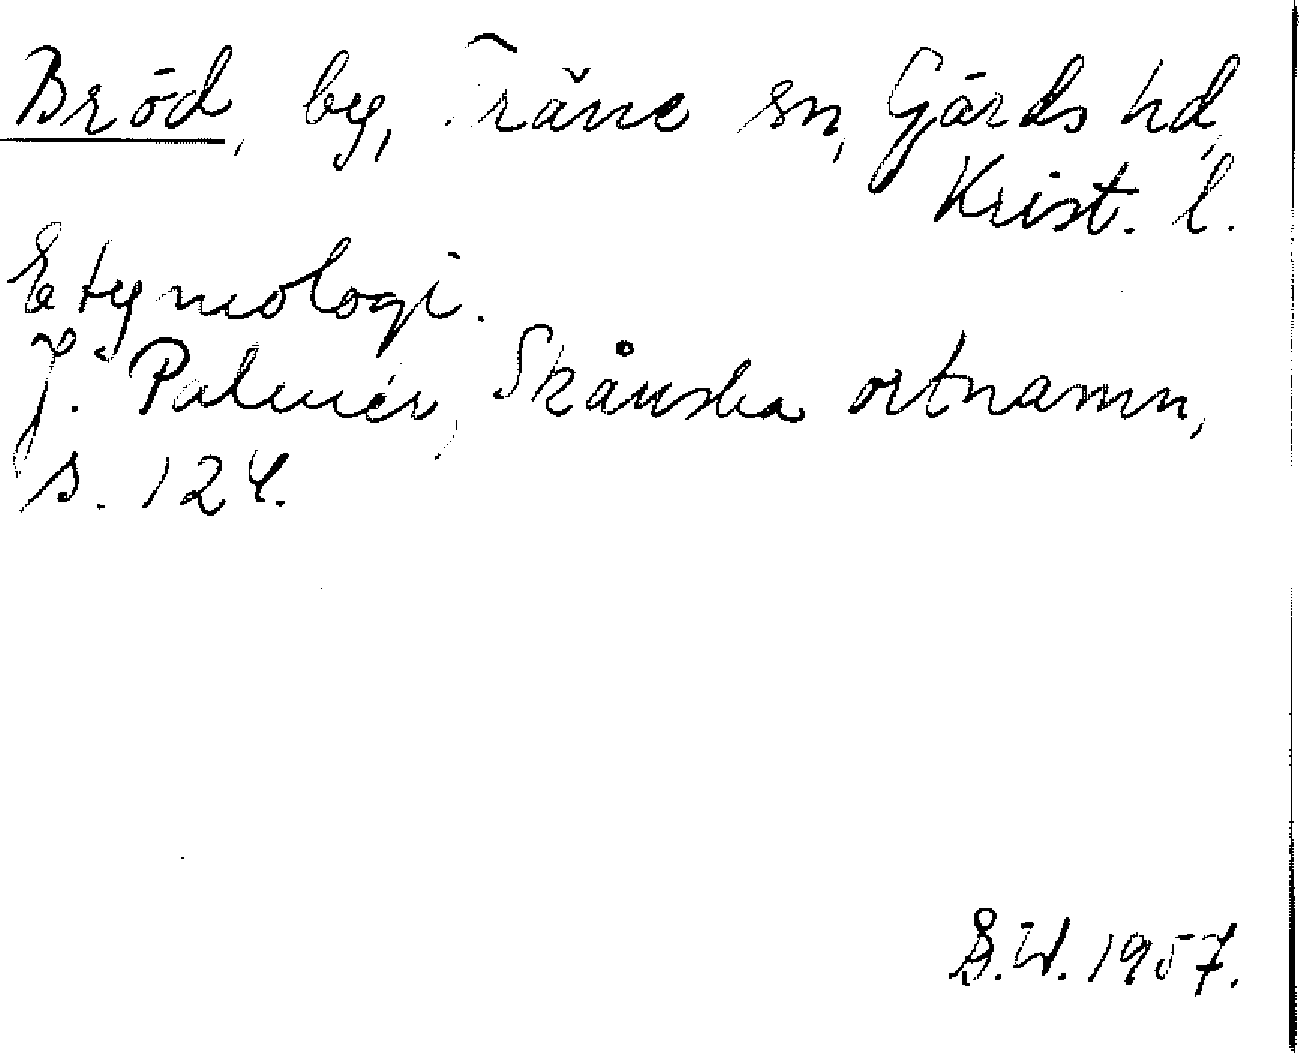 Bröd, by, Träne sn, Gärds hd,
Krist. l.
Etymologi.
J. Palmér, Skånska ortnamn,
s. 124.
S.W. 1957.